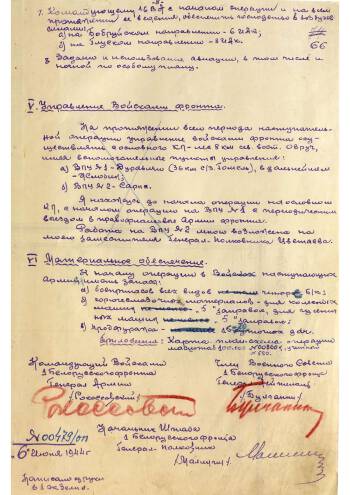 7. Командующему 16 ВА с началом операции и на всем
протяжении ее ведения, обеспечить господство в воздухе
силами:
а) на Бобруйском направлении - 6
б) на Глуском направлении -
66
8. Задачи и использование авиации, в том числе и
ночной по особому плану.
V. Управление Войсками фронта.
На протяжении всего периода наступатель-
ной операции управление войсками фронта осу-
ществлять с основного КП - лес 8 км сев. вост. Овруч,
имея вспомогательные пункты управления:
а) ВПУ №1 - Дуравлево
б) ВПУ №2 - Сарны.
Я нахожусь до начала операции на основном
КП, с началом операции на ВПУ №1 с периодическим
выездом в правофланговые Армии фронта.
Работа на ВПУ №2 мною возложена на
моего заместителя Генерал-Полковника
VI Материальное обеспечение.
К началу операции в Войсках наступающих
Армий иметь запас:
а) боеприпасов всех видов б/к;
б) горюче-смазочных материалов - для колесных
машин 5 заправок, для гусенич-
ных машин заправок;
в) продфуража - дач.
Приложение: Карта плана операции
Командующий Войсками
1 Белорусского фронта
Генерал Армии
(Рокоссовский)
Член Военного Совета
1 Белорусского фронта
Генерал-лейтенант
(Булганин)
№ 00479/оп
6 июня 1944 г.
Начальник Штаба
1 Белорусского фронта
Генерал-Полковник
(Малинин)
Написано от руки
в 1 экземпл.